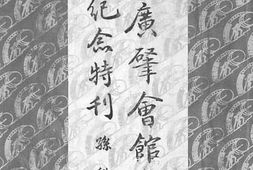 廣肇會館
紀念特刊
孫